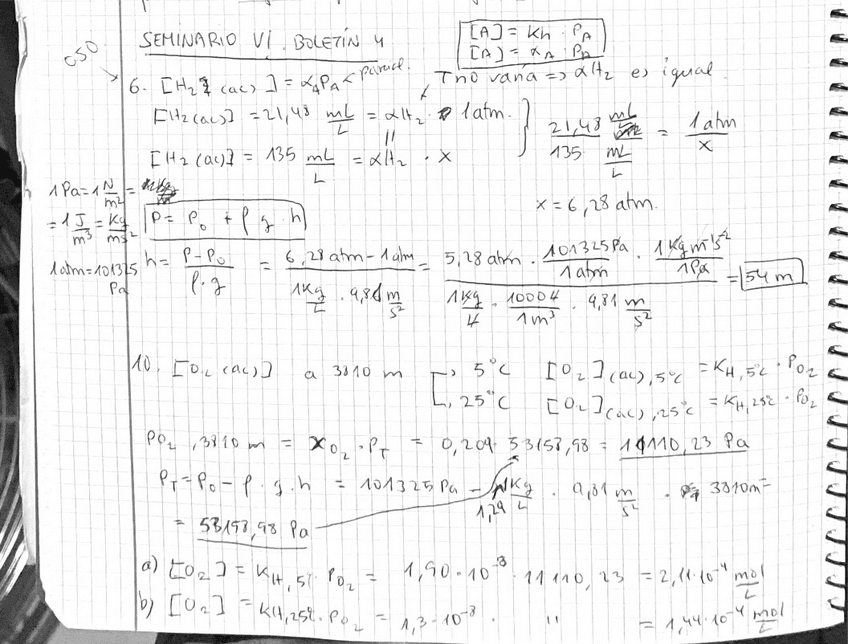 SEMINARIO VI. BOLETÍN 4
[A] = Kh · P_A
[A] = α_A · P_A
OSO
6. [H₂ (ac)] = α_A P_A ← parcial.
T no varía ⇒ αH₂ es igual
[H₂(ac)] = 21,48 mL/L = αH₂ · 1 atm.
[H₂(ac)] = 135 mL/L = αH₂ · x
21,48 mL/L / 135 mL/L = 1 atm / x
x = 6,28 atm.
1 Pa = 1 N/m² =
= 1 J/m³ = Kg/ms²
1 atm = 101325 Pa
P = P₀ + ρ g · h
h = P - P₀ / ρ · g = 6,28 atm - 1 atm / 1 Kg/L · 9,81 m/s² = 5,28 atm · 101325 Pa / 1 atm · 1 Kg m⁻¹ s⁻² / 1 Pa / 1 Kg/L · 1000 L / 1 m³ · 9,81 m/s² = 54 m
10. [O₂ (ac)] a 3810 m
5°C [O₂](ac),5°C = K_H,5°C · P_O₂
25°C [O₂](ac),25°C = K_H,25°C · P_O₂
P_O₂, 3810 m = X_O₂ · P_T = 0,209 · 53158,98 = 11110,23 Pa
P_T = P₀ - ρ · g · h = 101325 Pa - 1,29 Kg/L · 9,81 m/s² · 3810 m =
= 53158,98 Pa
a) [O₂] = K_H,5°C · P_O₂ = 1,90 · 10⁻⁸ · 11110,23 = 2,11 · 10⁻⁴ mol/L
b) [O₂] = K_H,25°C · P_O₂ = 1,3 · 10⁻⁸ · " = 1,44 · 10⁻⁴ mol/L